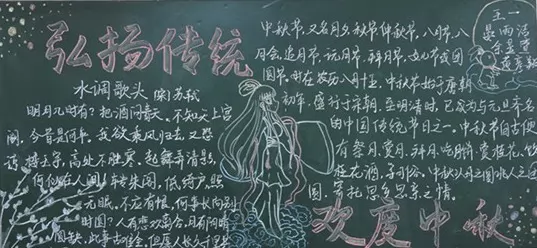 弘扬传统
水调歌头 宋 苏轼
明月几时有？把酒问青天。不知天上宫
阙，今昔是何年。我欲乘风归去，又恐
琼楼玉宇，高处不胜寒。起舞弄清影，
何似在人间！转朱阁，低绮户，照
无眠。不应有恨，何事长向别
时圆？人有悲欢离合，月有阴晴
圆缺，此事古难全。但愿人长久，千里共
中秋节，又名月夕、秋节、仲秋节、八月节、八
月会、追月节、玩月节、拜月节、女儿节或团
圆节，时在农历八月十五，中秋节始于唐朝
初年，盛行于宋朝，至明清时，已成为与元旦齐名
的中国传统节日之一。中秋节自古便
有祭月、赏月、拜月、吃月饼、赏桂花、饮
桂花酒，等习俗，中秋以月之圆兆人之团
圆，寄托思乡思亲之情。
王一
雨洁
欢度中秋